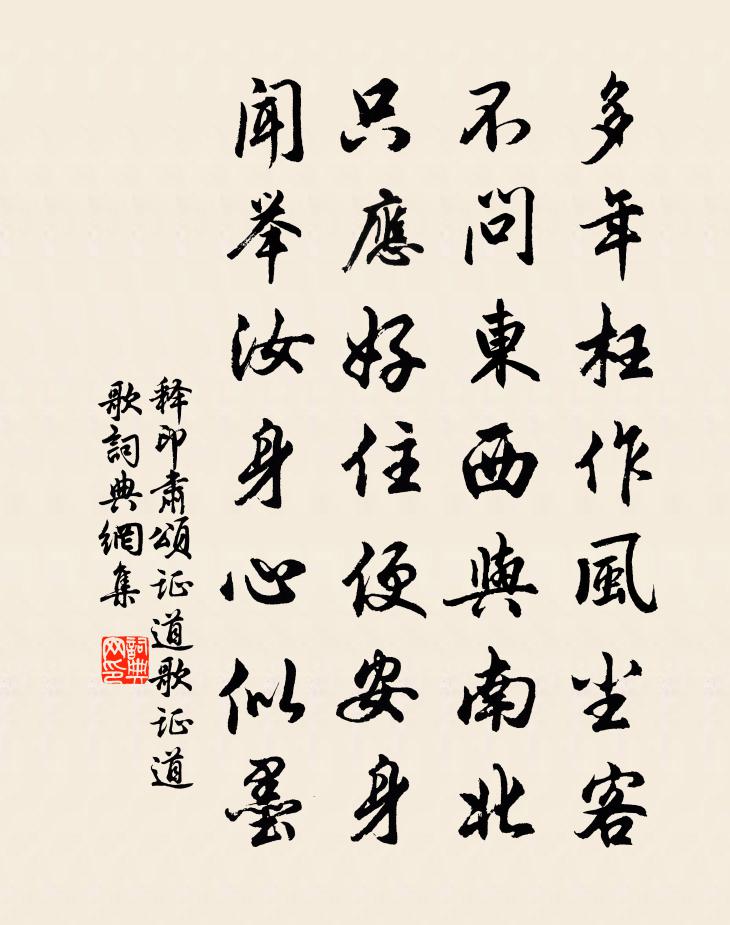 多年枉作風尘客
不問東西與南北
只應好住便安身
闻举汝身心似墨
释印肅頌证道歌证道
歌詞典網集
詞典网印